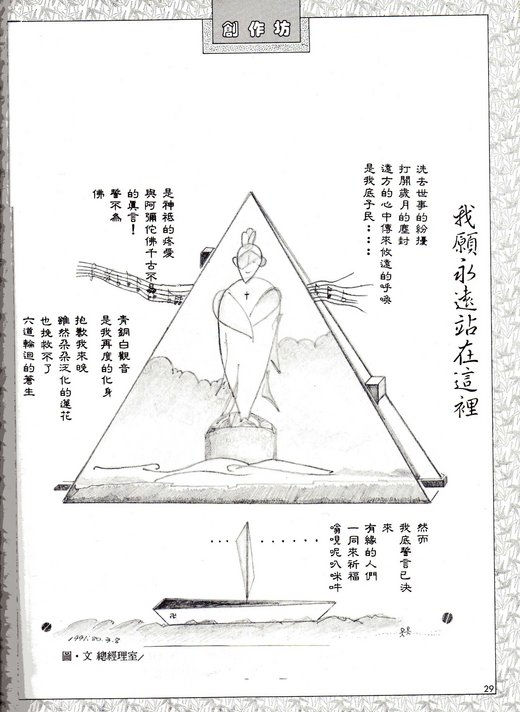 創作坊
我願永遠站在這裡
洗去世事的紛擾
打開歲月的塵封
遠方的心中傳來攸遠的呼喚
是我底子民‥‥
是神祗的疼愛
與阿彌陀佛千古不易
的真言！
誓不為
佛
青銅白觀音
是我再度的化身
抱歉我來晚
雖然朵朵泛化的蓮花
也挽救不了
六道輪迴的蒼生
然而
我底誓言已決
來
有緣的人們
一同來祈福
嗡嘪呢叭咪吽
卍
1991.80.3.8
圖・文 總經理室
29